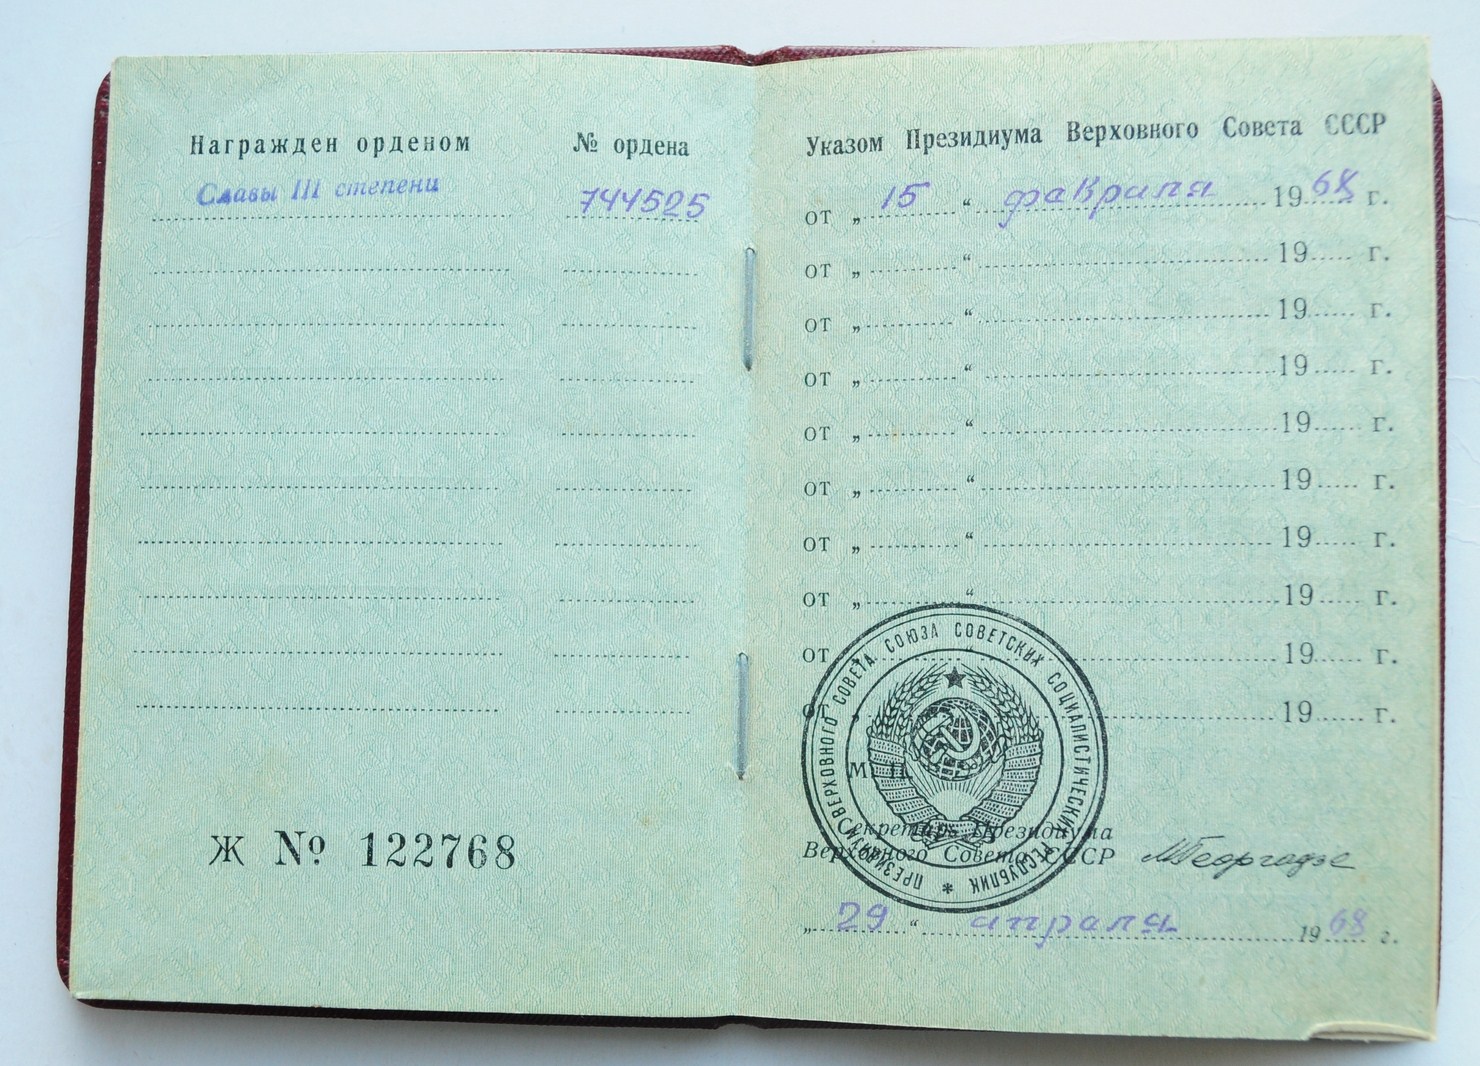 Награжден орденом № ордена
Славы III степени 744525
Ж № 122768
Указом Президиума Верховного Совета СССР
от „ 15 “ февраля 1968 г.
от „ “ 19 г.
от „ “ 19 г.
от „ “ 19 г.
от „ “ 19 г.
от „ “ 19 г.
от „ “ 19 г.
от „ “ 19 г.
от „ “ 19 г.
от „ 19 г.
М. П.
ПРЕЗИДИУМ ВЕРХОВНОГО СОВЕТА СОЮЗА СОВЕТСКИХ СОЦИАЛИСТИЧЕСКИХ РЕСПУБЛИК *
Секретарь Президиума
Верховного Совета СССР МГеоргадзе
„ 29 “ апреля 1968 г.